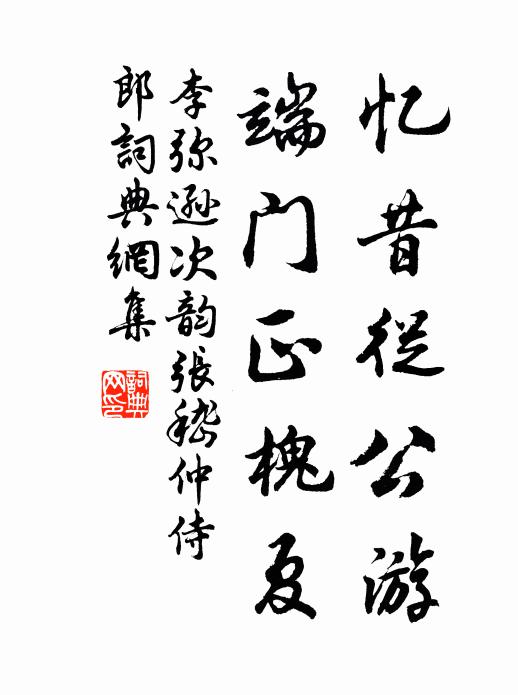 忆昔从公游
端门正槐夏
李弥逊次韵張嵇仲侍
郎詞典網集
詞典
网印